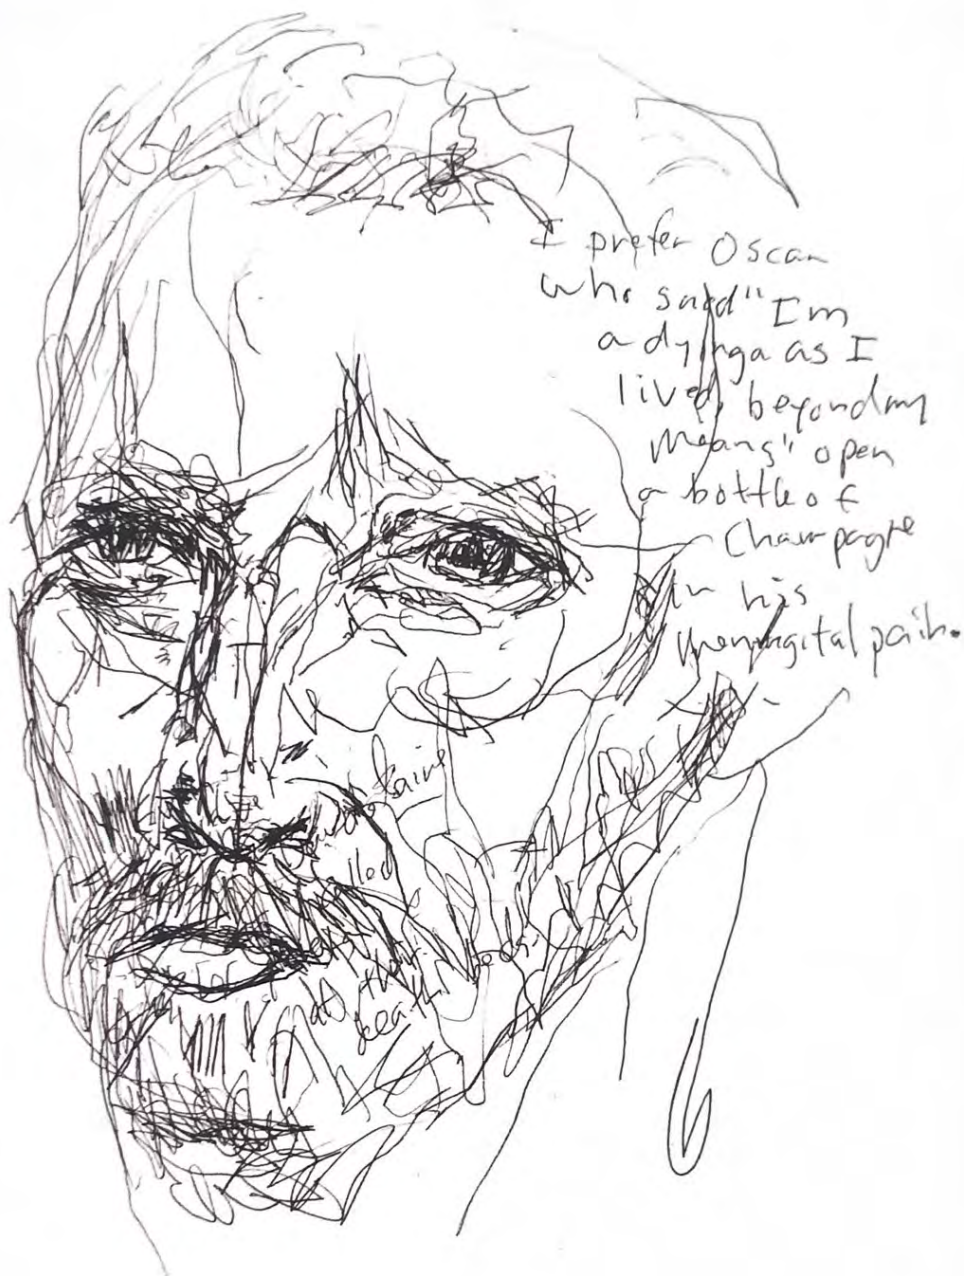 I prefer Oscar
who said "I'm
a dyinga as I
lived, beyond my
means" open
a bottle of
Champagne
in his
meningital pain.
at the
death